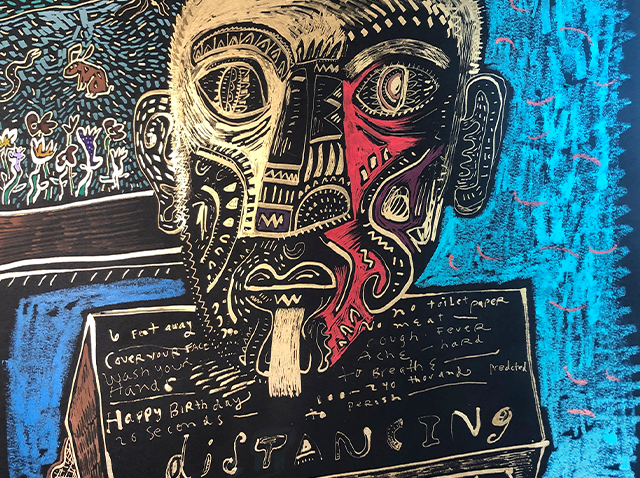 6 Foot away
COVER YOUR FACE
Wash your
Hands
Happy BirthDay
20 Seconds
no toilet paper
no meat
cough FEVER
Ache hard
to BreatHe predicted
240 thousand
to perish
dISTANCINg